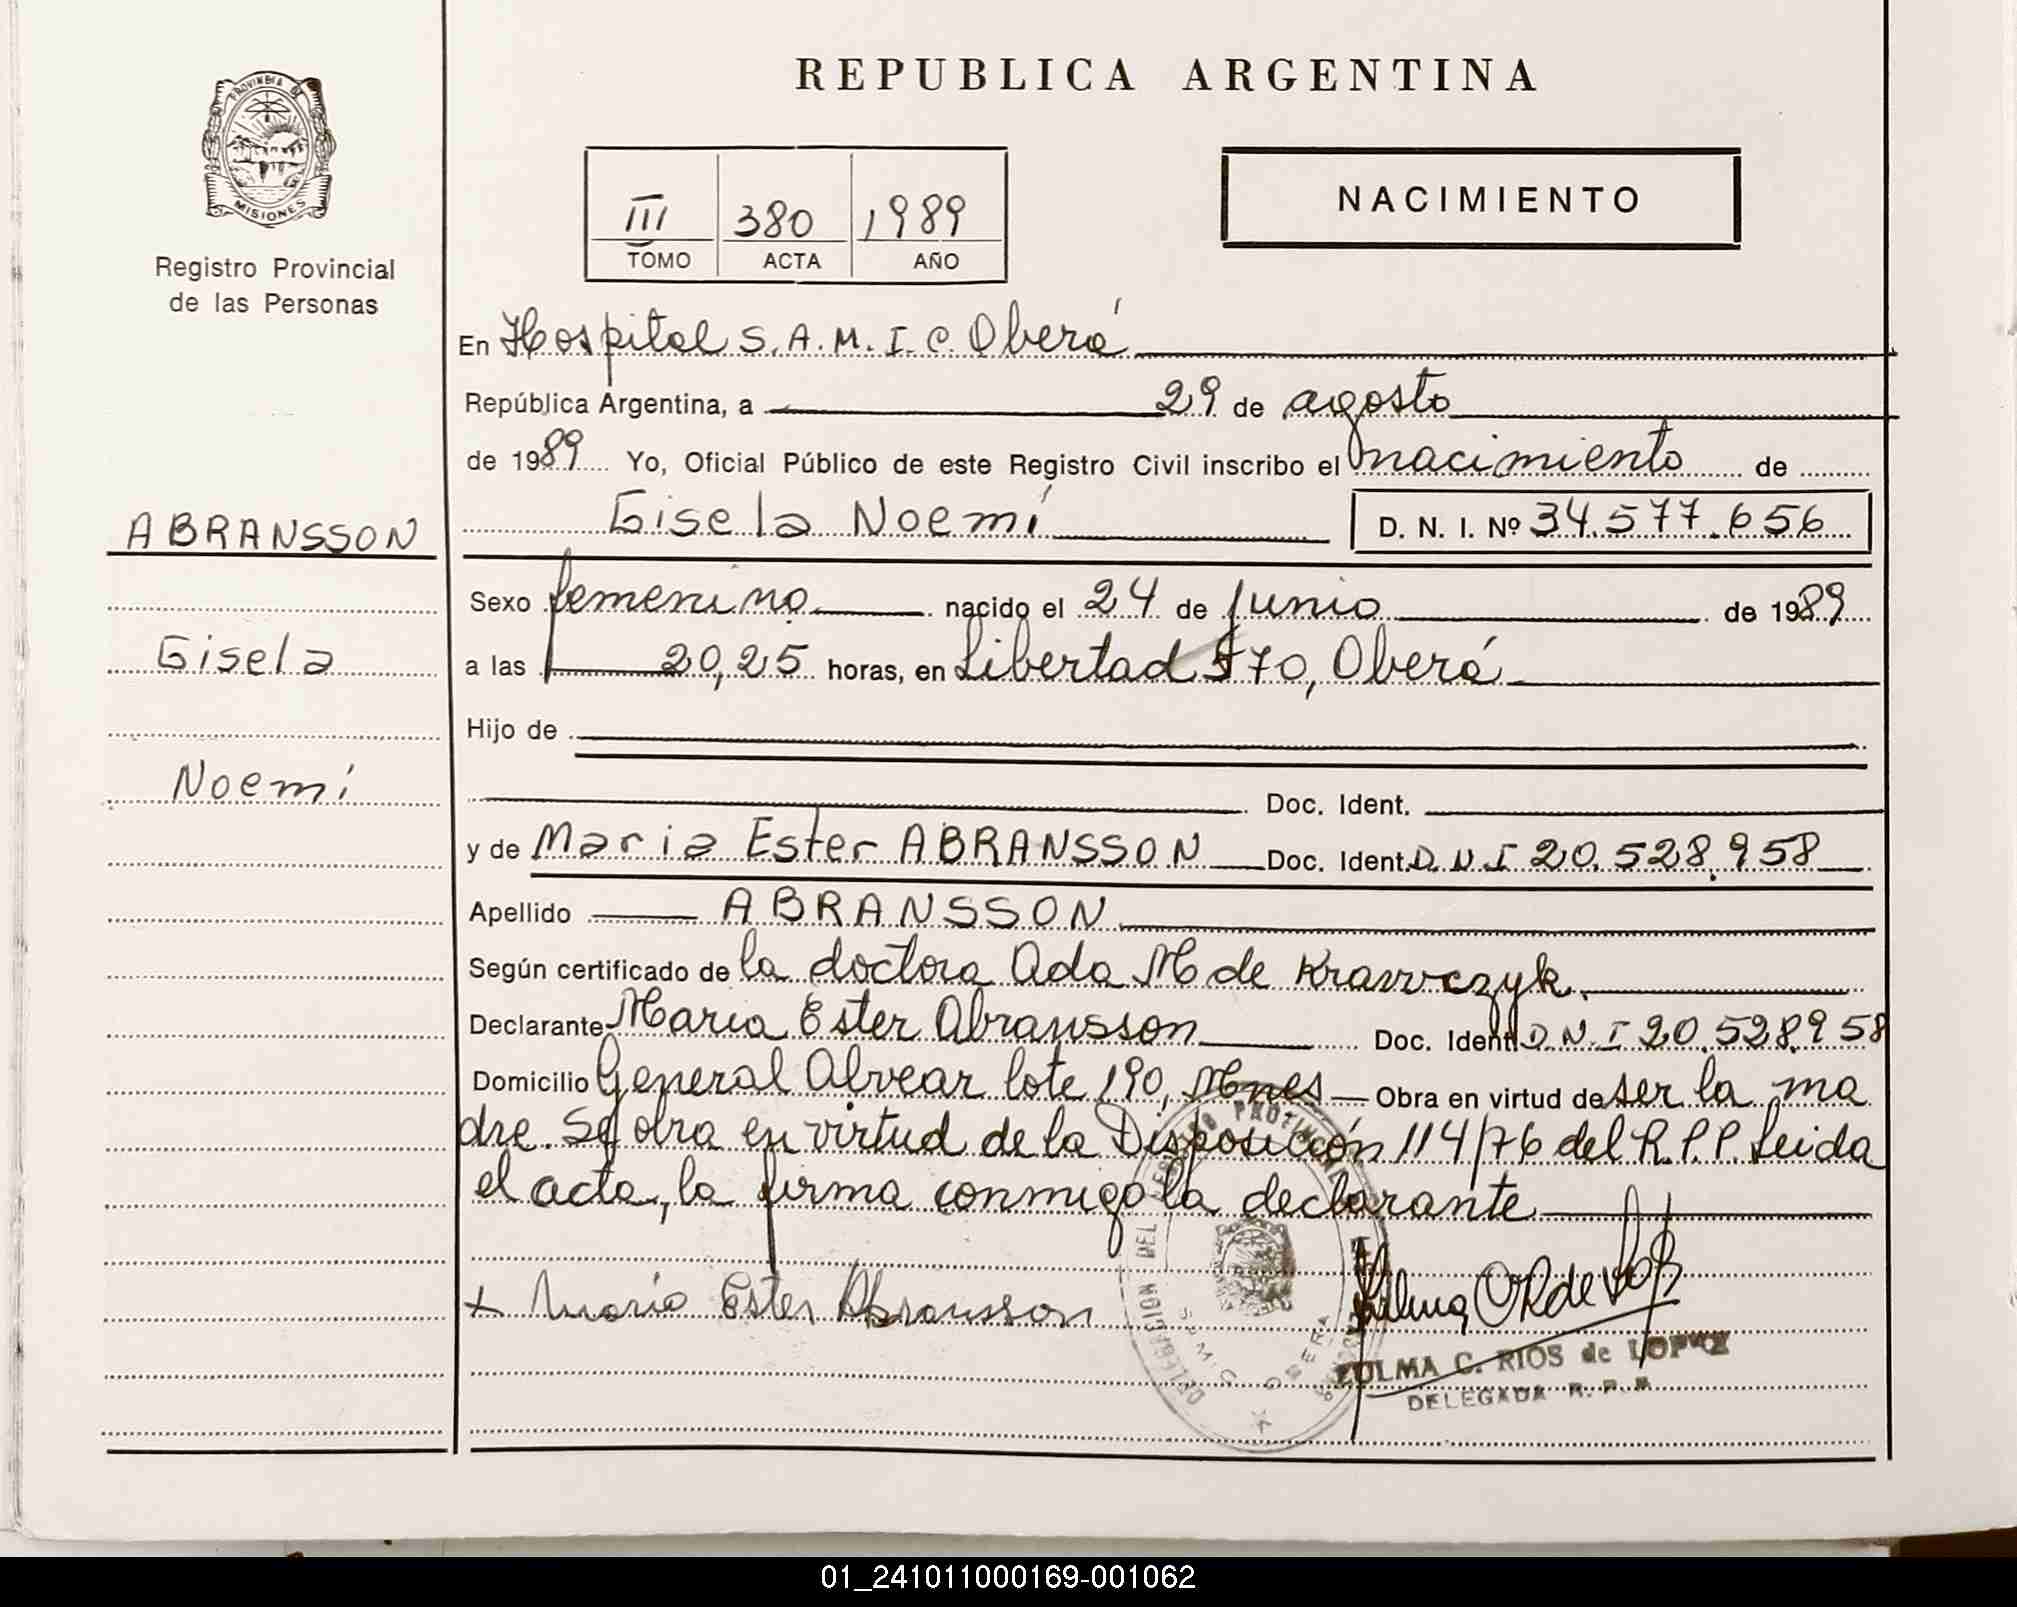 REPUBLICA ARGENTINA
PROVINCIA DE
MISIONES
Registro Provincial
de las Personas
NACIMIENTO
III 380 1989
TOMO ACTA AÑO
En Hospital S.A.M.I.C. Oberá
República Argentina, a 29 de agosto
de 1989 Yo, Oficial Público de este Registro Civil inscribo el nacimiento de
Gisela Noemí D. N. I. Nº 34.577.656
ABRANSSON
Gisela
Noemí
Sexo femenino nacido el 24 de junio de 1989
a las 20,25 horas, en Libertad 570, Oberá
Hijo de
Doc. Ident.
y de Maria Ester ABRANSSON Doc. Ident. D.N.I 20.528.958
Apellido ABRANSSON
Según certificado de la doctora Ada M de Krawczyk.
Declarante Maria Ester Abransson Doc. Ident. D.N.I 20.528.958
Domicilio General Alvear lote 190, Mnes Obra en virtud de ser la ma
dre. Se obra en virtud de la Disposición 114/76 del R.P.P. Leida
el acta, la firma conmigo la declarante
+ Maria Ester Abransson
ZULMA C. RIOS de LOPEZ
DELEGADA R. P. P.
DELEGACION DEL
OBERA
01_241011000169-001062